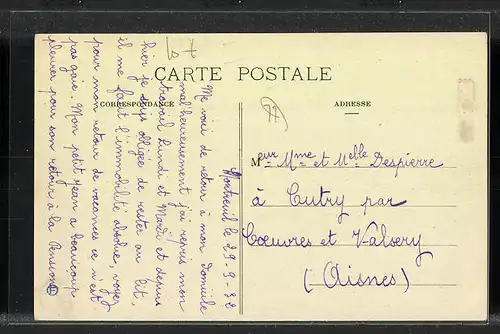 CARTE POSTALE
CORRESPONDANCE
ADRESSE
Montreuil le 29-9-32
Me voici de retour à mon domicile
malheureusement j'ai repris mon
travail Lundi et Mardi et depuis
hier je suis obligée de rester au lit,
il me faut l'immobilité absolue, voyez
pour mon retour de vacances ce n'est
pas gaie. Mon petit Jean a beaucoup
pleurer pour son retour à la Pension
Meur Mme et Melle Despierre
à Cutry par
Coeuvres et Valsery
(Aisnes)